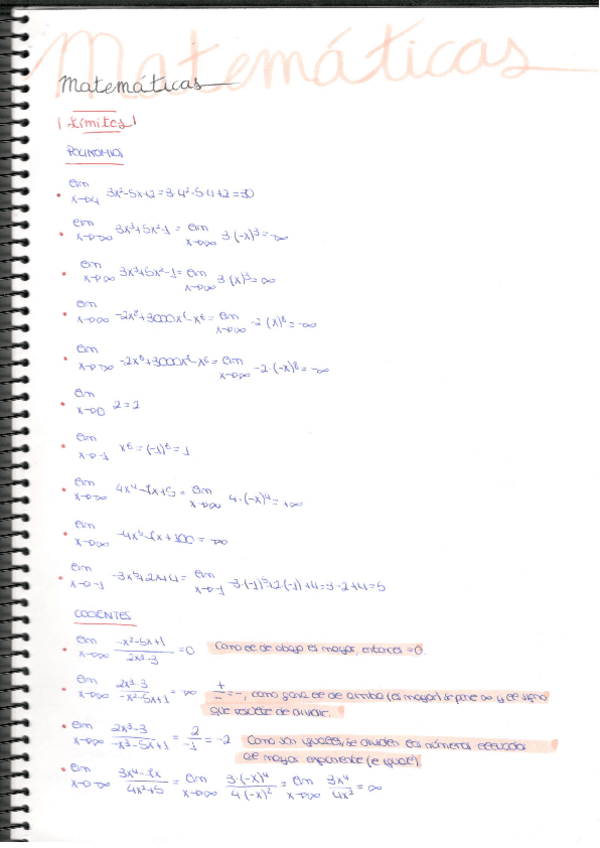 Matemáticas
Matemáticas
Límites
POLINOMIOS
• lim x→4 3x²-5x+2=3·4²-5·4+2=30
• lim x→-∞ 3x³+5x²-1 = lim x→∞ 3·(-x)³=-∞
• lim x→∞ 3x³+5x²-1= lim x→∞ 3(x)³=∞
• lim x→∞ -2x⁸+3000x⁶-x⁶= lim x→∞ -2(x)⁸=-∞
• lim x→-∞ -2x⁸+3000x⁶-x⁶= lim x→∞ -2·(-x)⁸=-∞
• lim x→0 2=2
• lim x→-1 x⁶=(-1)⁶=1
• lim x→-∞ 4x⁴-7x+5= lim x→∞ 4·(-x)⁴=+∞
• lim x→∞ -4x⁵-7x+300=-∞
• lim x→-1 -3x⁵+2x+4= lim x→-1 -3(-1)⁵+2(-1)+4=3-2+4=5
COCIENTES
• lim x→∞ (-x²-5x+1)/(2x³-3) =0 Como el de abajo es mayor, entonces =0.
• lim x→∞ (2x³-3)/(-x²-5x+1) = -∞ +/- = -, como gana el de arriba (es mayor) se pone ∞ y el signo
que resulte de dividir.
• lim x→∞ (2x³-3)/(-x³-5x+1) = 2/-1 =-2 Como son iguales, se dividen los números elevados
al mayor exponente (e igual).
• lim x→-∞ (3x⁴-7x)/(4x²+5) = lim x→∞ 3·(-x)⁴/4(-x)² = lim x→∞ 3x⁴/4x² =∞